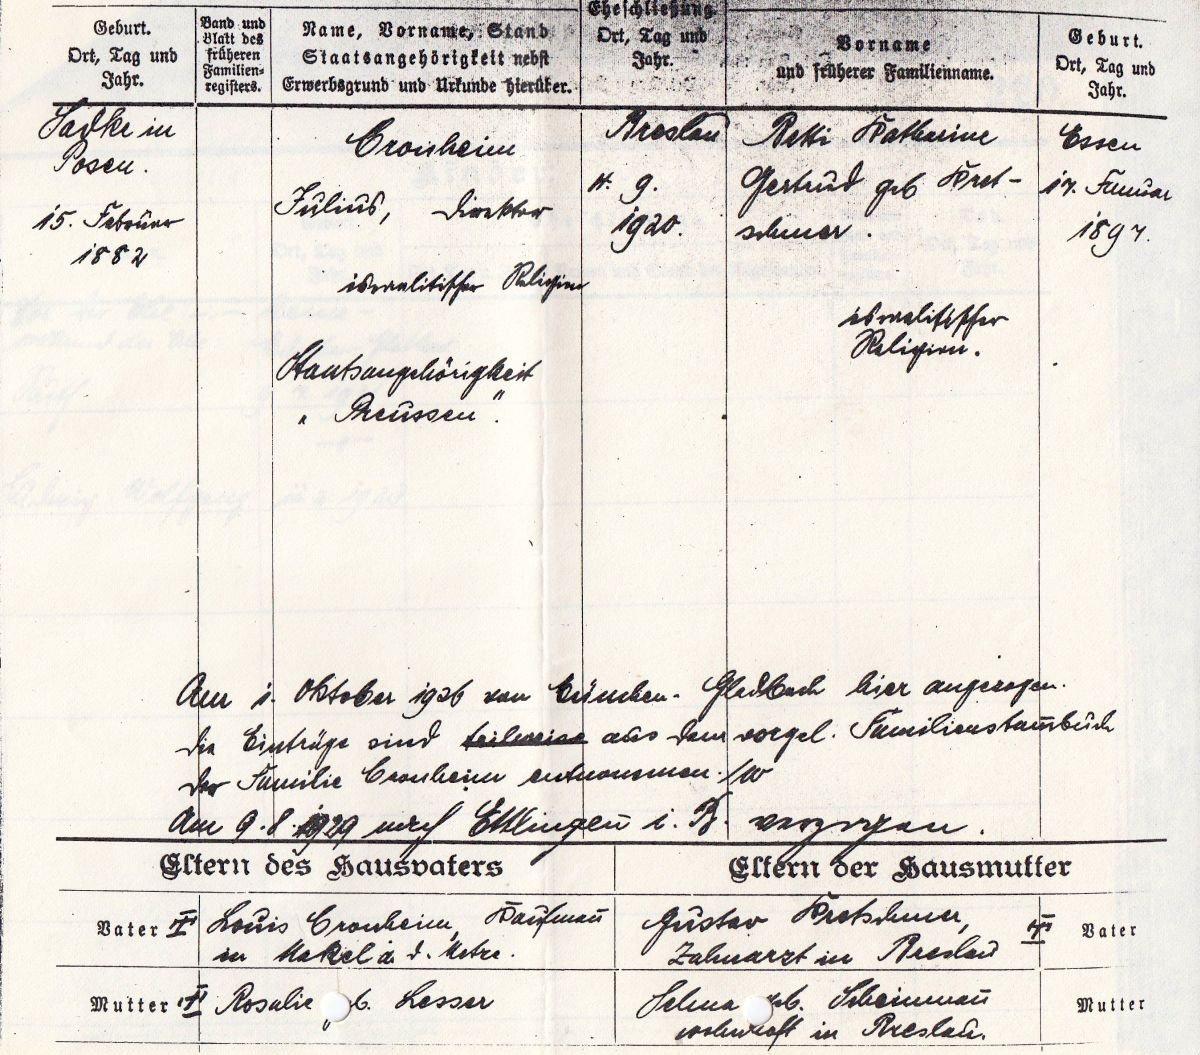 Geburt.
Ort, Tag und
Jahr.
Band und
Blatt des
früheren
Familien-
registers.
Name, Vorname, Stand
Staatsangehörigkeit nebst
Erwerbsgrund und Urkunde hierüber.
Eheschließung.
Ort, Tag und
Jahr.
Vorname
und früherer Familienname.
Geburt.
Ort, Tag und
Jahr.
Sadke in
Posen.
15. Februar
1882
Cronheim
Julius, Direktor
israelitischer Religion
Staatsangehörigkeit
„Preussen".
Breslau
4. 9.
1920.
Betti Katharine
Gertrud geb Kret-
schmer.
israelitischer
Religion.
Essen
17. Januar
1897.
Am 1. Oktober 1926 von München-Gladbach hier angezogen.
Die Einträge sind teilweise aus dem vorgel. Familienstambuch
der Familie Cronheim entnommen.
Am 9. 8. 1929 nach Ettlingen i. B. verzogen.
Eltern des Hausvaters
Eltern der Hausmutter
Vater Louis Cronheim, Kaufmann
in Nakel a. d. Netze.
Gustav Kretschmer,
Zahnarzt in Breslau
Vater
Mutter Rosalie geb. Lesser
Selma geb. Scheinmann
wohnhaft in Breslau.
Mutter